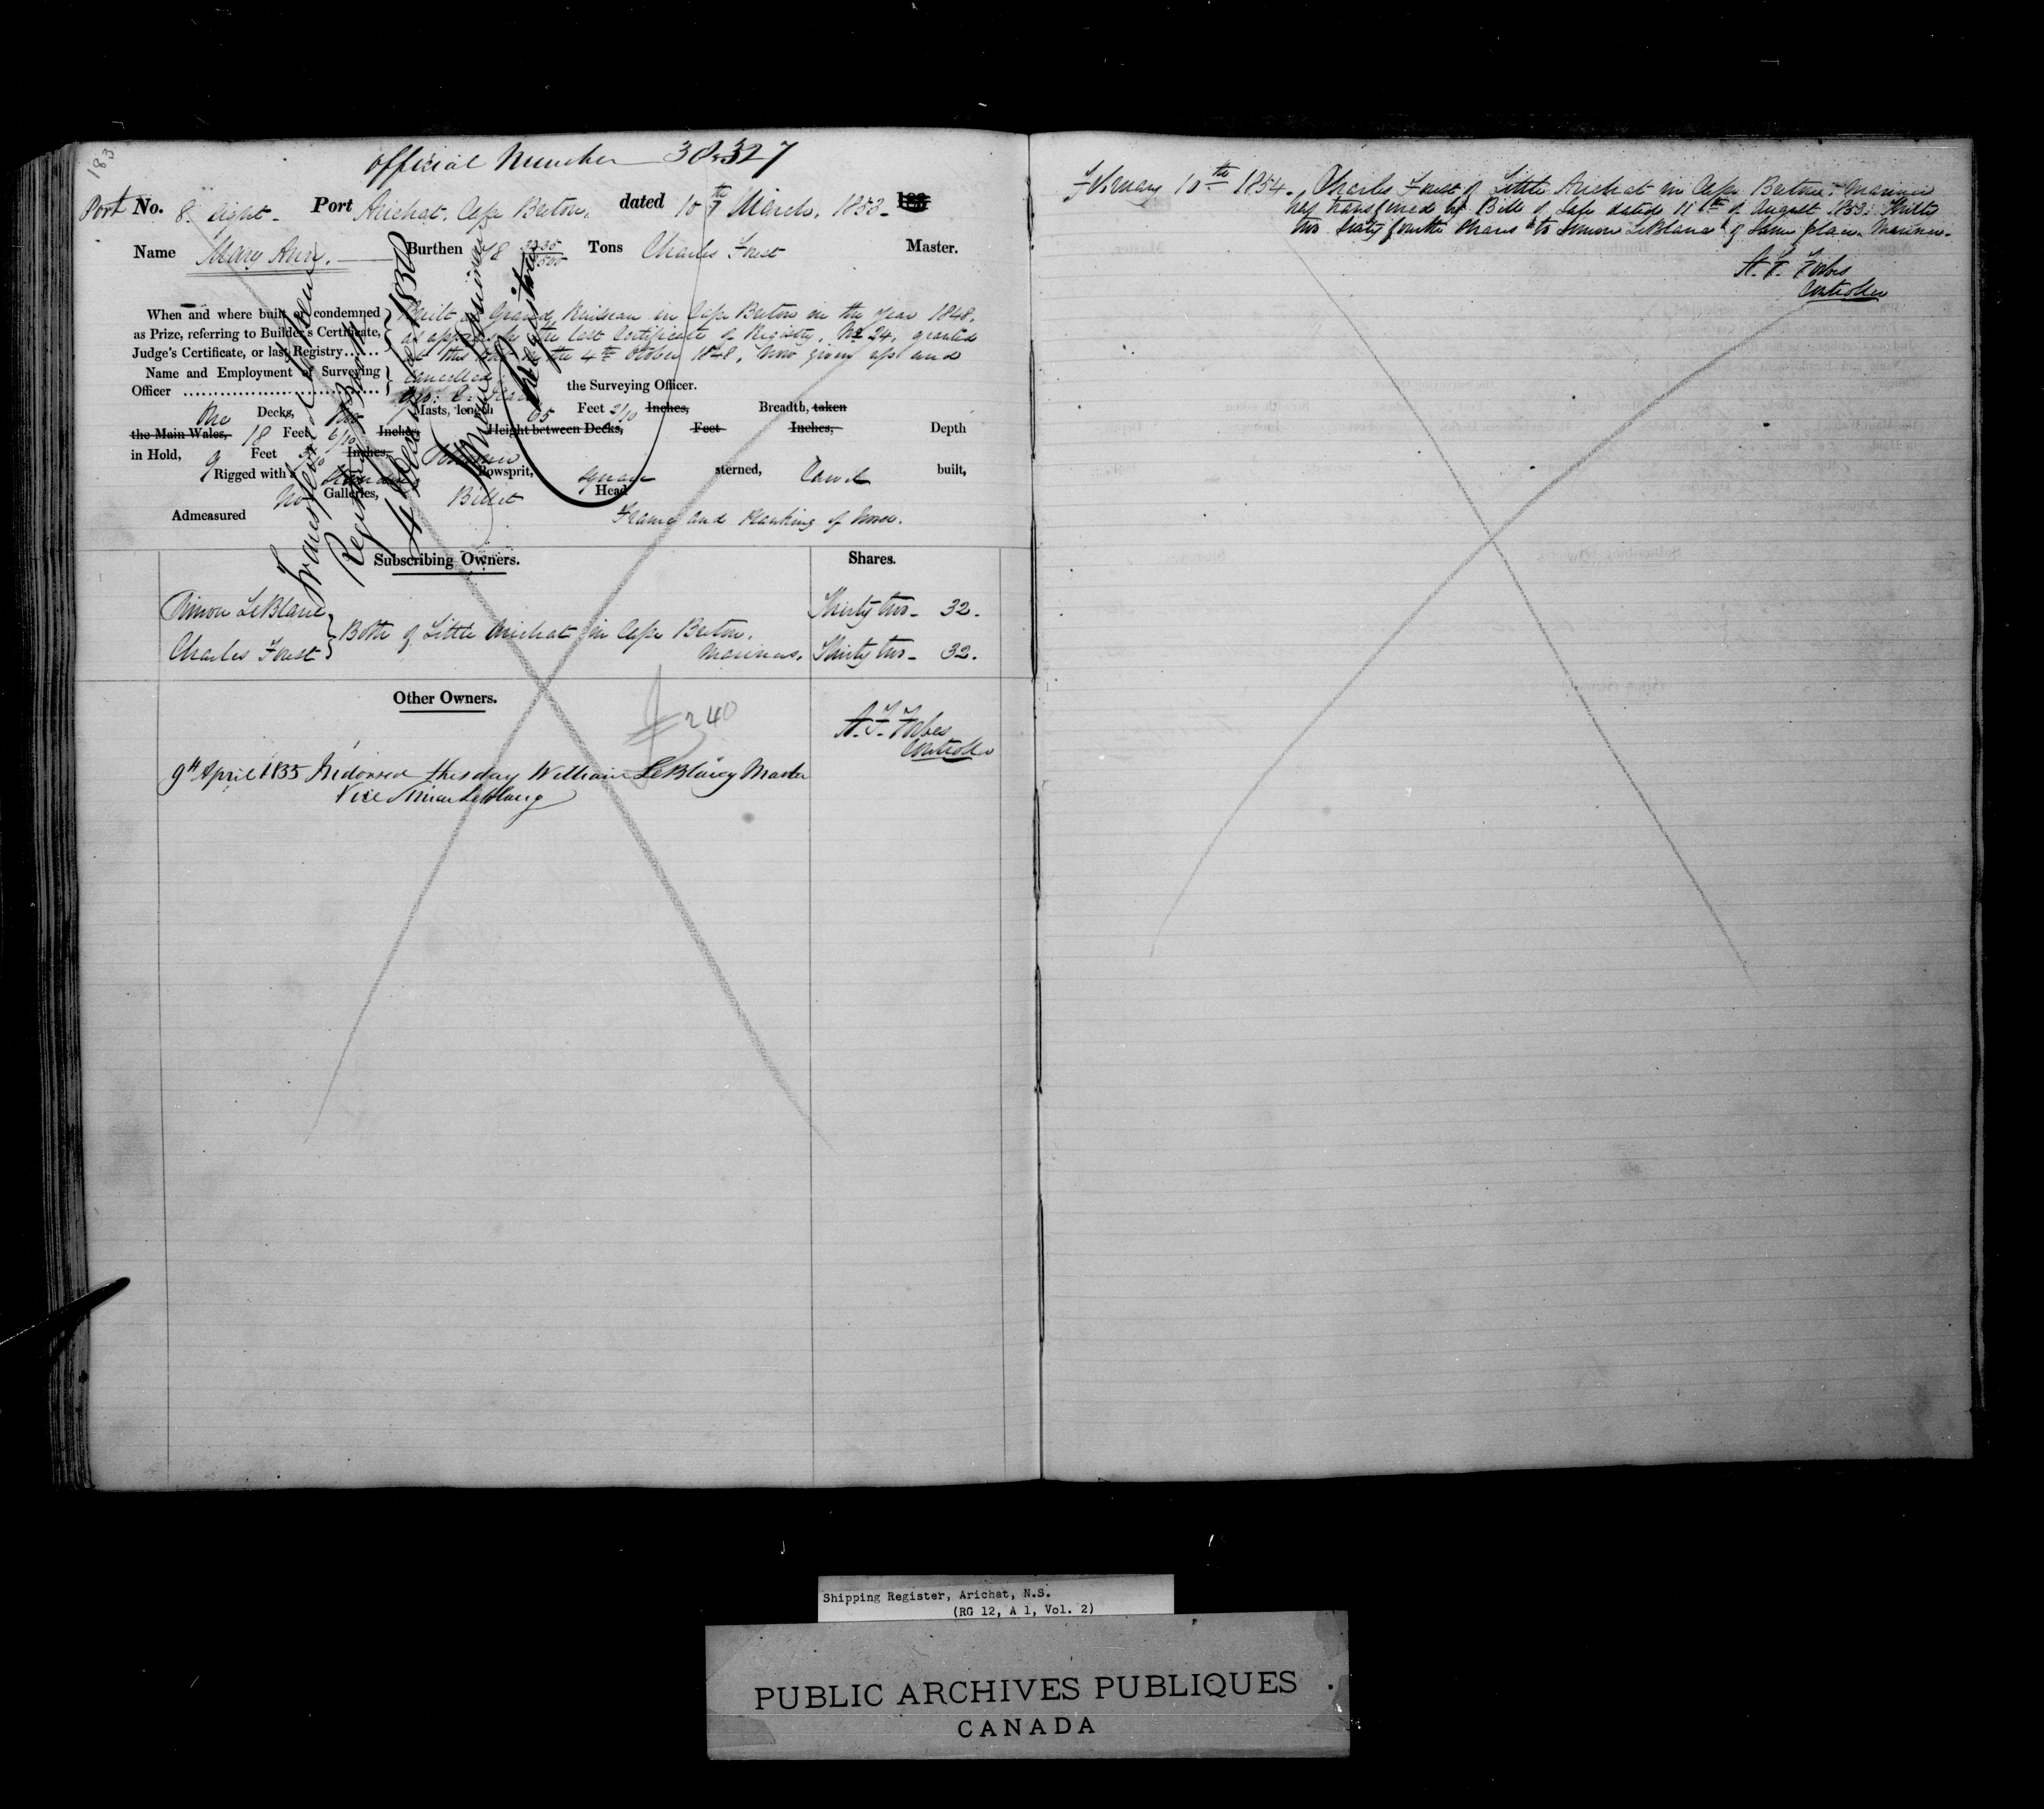 183
official Number 38.327
Port No. 8. Eight - Port Arichat, Cape Breton, dated 10th March, 1853 -
Name Mary Ann. Burthen 48 Tons Charles Forest Master.
When and where built or condemned as Prize, referring to Builder's Certificate, Judge's Certificate, or last Registry......
Built at Grand Ruisseau in Cape Breton in the Year 1848.
as appears by the last Certificate of Registry, No 24, granted
at this Port on the 4th October 1848, Now given up and
Cancelled.
Name and Employment of Surveying Officer
the Surveying Officer.
One Decks, Two Masts, length 65 Feet 2/10 Inches, Breadth, taken
the Main Wales, 18 Feet 6/10 Inches, Height between Decks, Feet Inches, Depth
in Hold, 9 Feet Inches,
Rigged with a Standing Bowsprit, Square sterned, Carvel built,
No Galleries, Billet Head
Admeasured Frame and Planking of Wood.
Transferred to New
Registry Book
Registrar
Subscribing Owners. Shares.
Simon LeBlanc Thirty two - 32.
Both of Little Arichat in Cape Breton,
Charles Forest Mariners. Thirty two - 32.
Other Owners.
240
A. F. Forbes
Controller
9th April 1855 Indorsed this day William LeBlang Master
Vice Simon LeBlang
February 10th 1854. Charles Forest of Little Arichat in Cape Breton, Mariner
has transferred by Bill of Sale dated 11th of August 1853. Thirty
two Sixty fourth Shares to Simon LeBlanc of Same place. Mariner.
A. F. Forbes
Controller
Shipping Register, Arichat, N.S.
(RG 12, A 1, Vol. 2)
PUBLIC ARCHIVES PUBLIQUES
CANADA